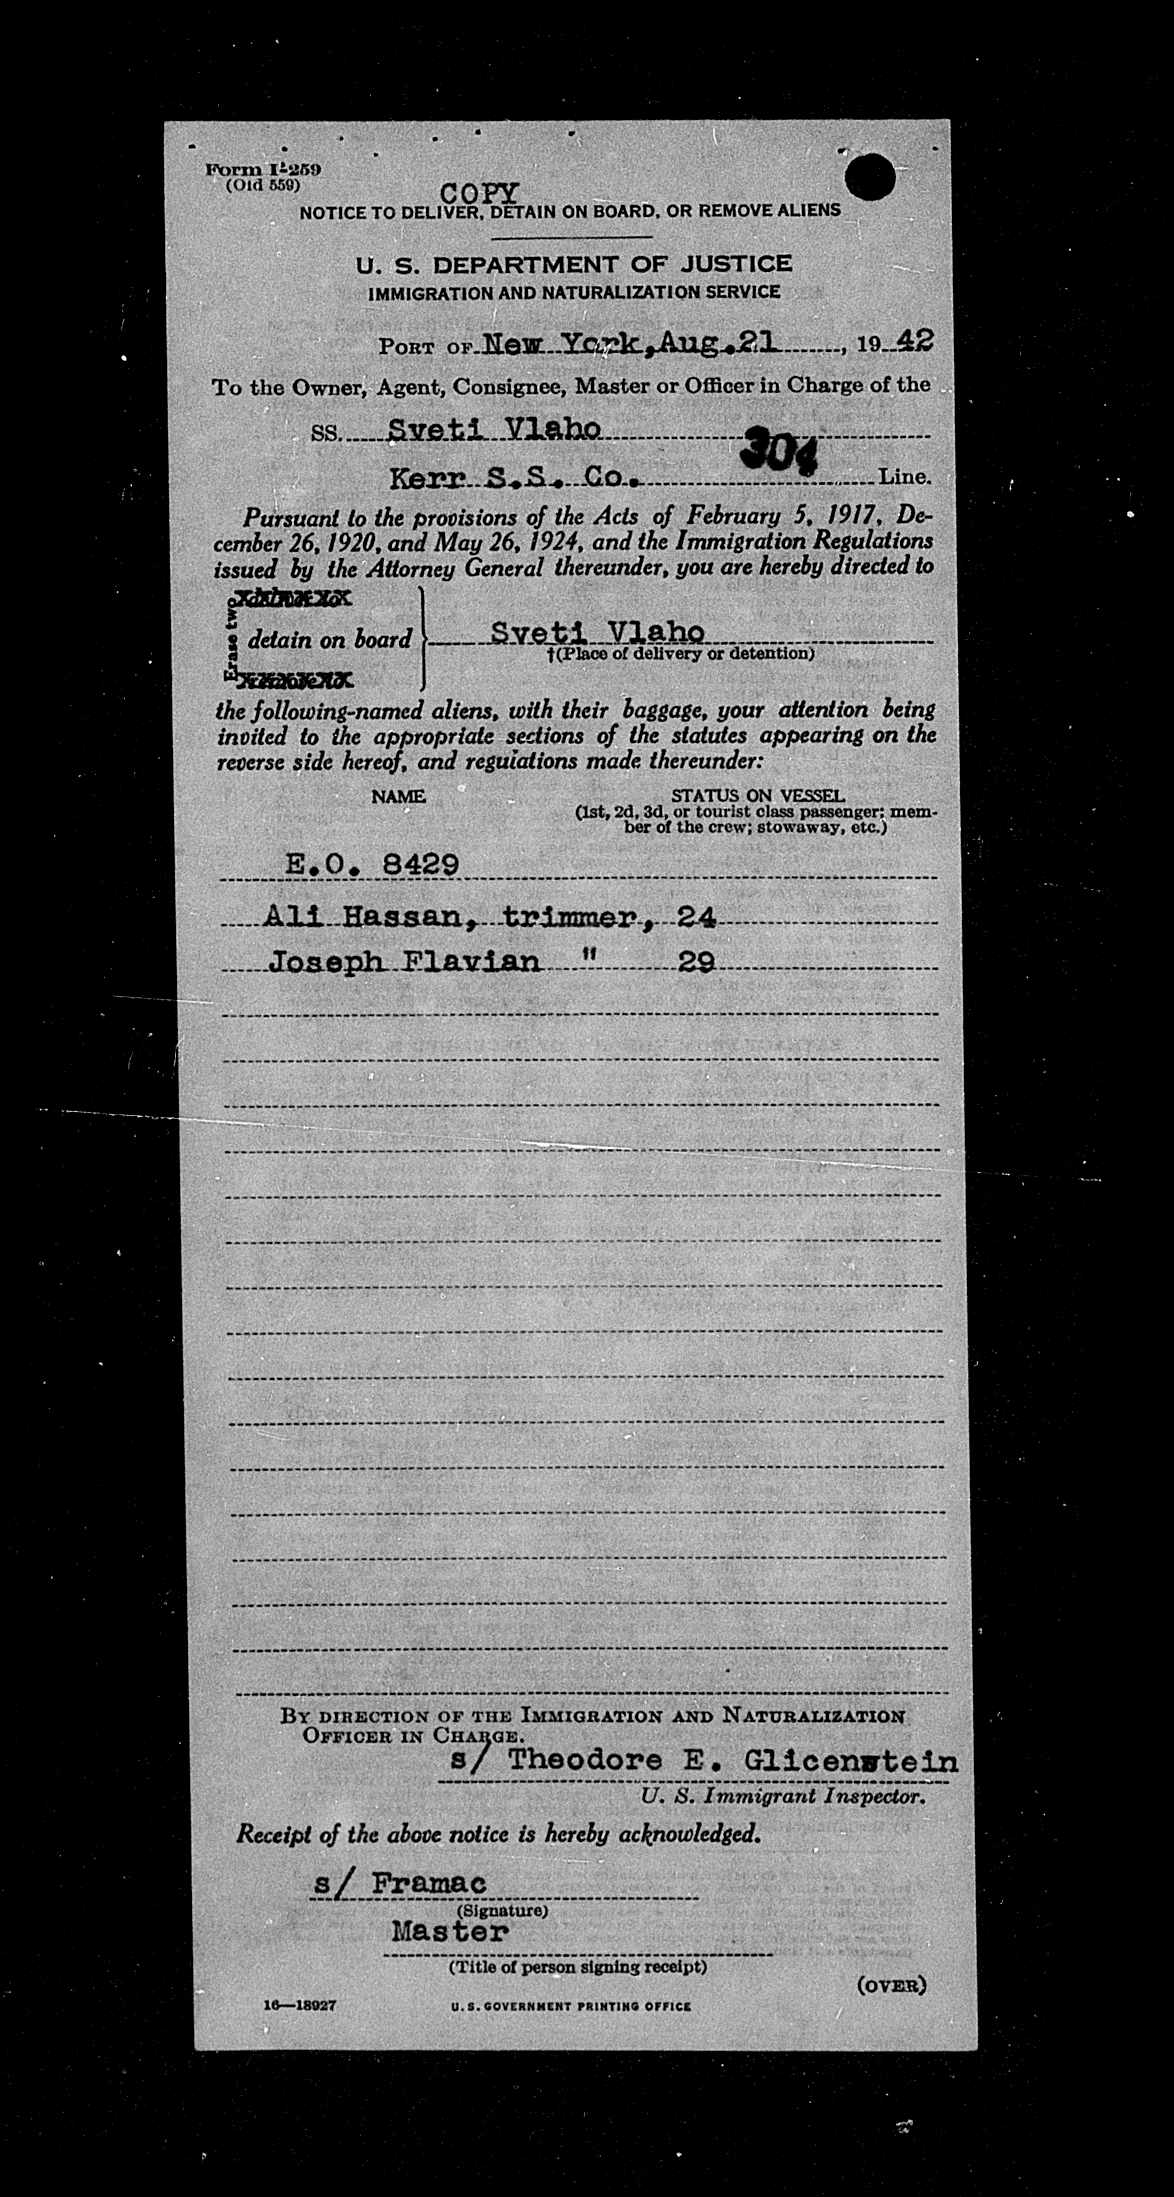 Form I-259
(Old 559)
COPY
NOTICE TO DELIVER, DETAIN ON BOARD, OR REMOVE ALIENS
U. S. DEPARTMENT OF JUSTICE
IMMIGRATION AND NATURALIZATION SERVICE
PORT OF New York, Aug. 21, 1942
To the Owner, Agent, Consignee, Master or Officer in Charge of the
SS. Sveti Vlaho
304
Kerr S.S. Co. Line.
Pursuant to the provisions of the Acts of February 5, 1917, De-
cember 26, 1920, and May 26, 1924, and the Immigration Regulations
issued by the Attorney General thereunder, you are hereby directed to
Erase two
detain on board Sveti Vlaho
†(Place of delivery or detention)
the following-named aliens, with their baggage, your attention being
invited to the appropriate sections of the statutes appearing on the
reverse side hereof, and regulations made thereunder:
NAME STATUS ON VESSEL
(1st, 2d, 3d, or tourist class passenger; mem-
ber of the crew; stowaway, etc.)
E.O. 8429
Ali Hassan, trimmer, 24
Joseph Flavian " 29
BY DIRECTION OF THE IMMIGRATION AND NATURALIZATION
OFFICER IN CHARGE.
s/ Theodore E. Glicenstein
U. S. Immigrant Inspector.
Receipt of the above notice is hereby acknowledged.
s/ Framac
(Signature)
Master
(Title of person signing receipt)
(OVER)
16—18927 U. S. GOVERNMENT PRINTING OFFICE